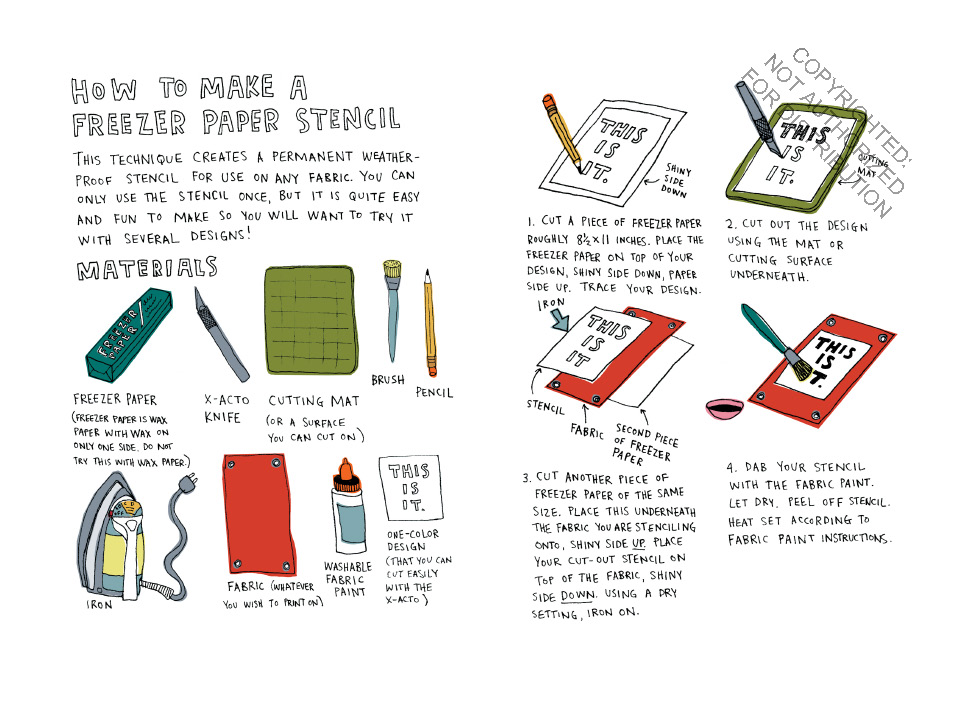 HOW TO MAKE A
FREEZER PAPER STENCIL
THIS TECHNIQUE CREATES A PERMANENT WEATHER-
PROOF STENCIL FOR USE ON ANY FABRIC. YOU CAN
ONLY USE THE STENCIL ONCE, BUT IT IS QUITE EASY
AND FUN TO MAKE SO YOU WILL WANT TO TRY IT
WITH SEVERAL DESIGNS!
MATERIALS
FREEZER
PAPER
FREEZER PAPER
(FREEZER PAPER IS WAX
PAPER WITH WAX ON
ONLY ONE SIDE. DO NOT
TRY THIS WITH WAX PAPER.)
X-ACTO
KNIFE
CUTTING MAT
(OR A SURFACE
YOU CAN CUT ON)
BRUSH
PENCIL
OFF
IRON
FABRIC (WHATEVER
YOU WISH TO PRINT ON)
WASHABLE
FABRIC
PAINT
THIS
IS
IT.
ONE-COLOR
DESIGN
(THAT YOU CAN
CUT EASILY
WITH THE
X-ACTO)
THIS
IS
IT.
SHINY
SIDE
DOWN
1. CUT A PIECE OF FREEZER PAPER
ROUGHLY 8½ X 11 INCHES. PLACE THE
FREEZER PAPER ON TOP OF YOUR
DESIGN, SHINY SIDE DOWN, PAPER
SIDE UP. TRACE YOUR DESIGN.
THIS
IS
IT.
CUTTING
MAT
2. CUT OUT THE DESIGN
USING THE MAT OR
CUTTING SURFACE
UNDERNEATH.
IRON
THIS
IS
IT
STENCIL
FABRIC
SECOND PIECE
OF FREEZER
PAPER
3. CUT ANOTHER PIECE OF
FREEZER PAPER OF THE SAME
SIZE. PLACE THIS UNDERNEATH
THE FABRIC YOU ARE STENCILING
ONTO, SHINY SIDE UP. PLACE
YOUR CUT-OUT STENCIL ON
TOP OF THE FABRIC, SHINY
SIDE DOWN. USING A DRY
SETTING, IRON ON.
THIS
IS
IT.
4. DAB YOUR STENCIL
WITH THE FABRIC PAINT.
LET DRY. PEEL OFF STENCIL.
HEAT SET ACCORDING TO
FABRIC PAINT INSTRUCTIONS.
COPYRIGHTED:
NOT AUTHORITED
FOR DISTRIBUTION